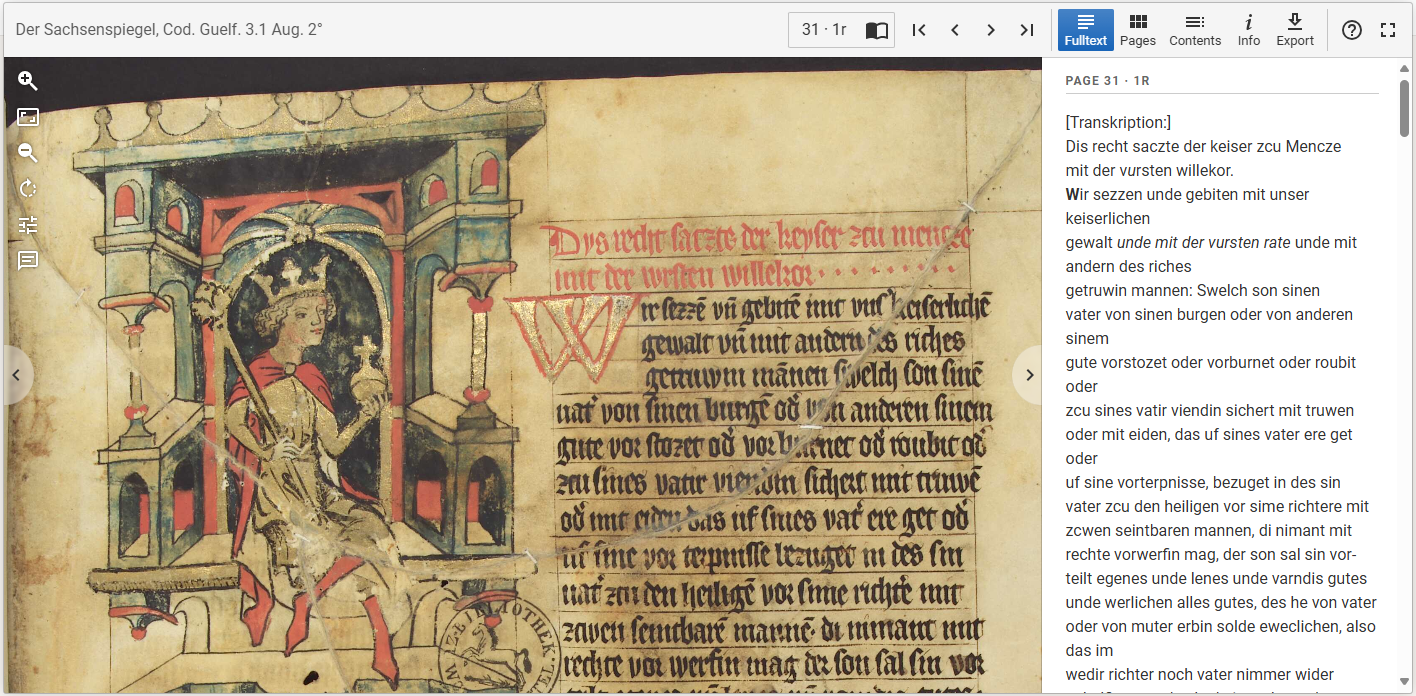 Der Sachsenspiegel, Cod. Guelf. 3.1 Aug. 2°
31 · 1r
Fulltext
Pages
Contents
Info
Export
Dys recht saczte der keyser zcu mencze
mit der vrsten willekor · · · · · · · · ·
Wir sezzē vn̄ gebitē mit vns᾽ keiserlichē
gewalt vn̄ mit andern des riches
getruwin mānen swelch son sinē
uat᾽ von sinen burgē od᾽ von anderen sinem
gute vor stozet od᾽ vor burnet od᾽ roubit od᾽
zcu sines vatir viendin sichert mit truwē
od᾽ mit eiden das uf sines vat᾽ ere get od᾽
uf sine vor terpnisse bezuget in des sin
uat᾽ zcu den heiligē vor sime richt᾽e mit
zcwen sentbarē mannē di nimant mit
rechte vor werfin mag der son sal sin vor
PAGE 31 · 1R
[Transkription:]
Dis recht saczte der keiser zcu Mencze
mit der vursten willekor.
Wir sezzen unde gebiten mit unser
keiserlichen
gewalt unde mit der vursten rate unde mit
andern des riches
getruwin mannen: Swelch son sinen
vater von sinen burgen oder von anderen
sinem
gute vorstozet oder vorburnet oder roubit
oder
zcu sines vatir viendin sichert mit truwen
oder mit eiden, das uf sines vater ere get
oder
uf sine vorterpnisse, bezuget in des sin
vater zcu den heiligen vor sime richtere mit
zcwen seintbaren mannen, di nimant mit
rechte vorwerfin mag, der son sal sin vor-
teilt egenes unde lenes unde varndis gutes
unde werlichen alles gutes, des he von vater
oder von muter erbin solde eweclichen, also
das im
wedir richter noch vater nimmer wider